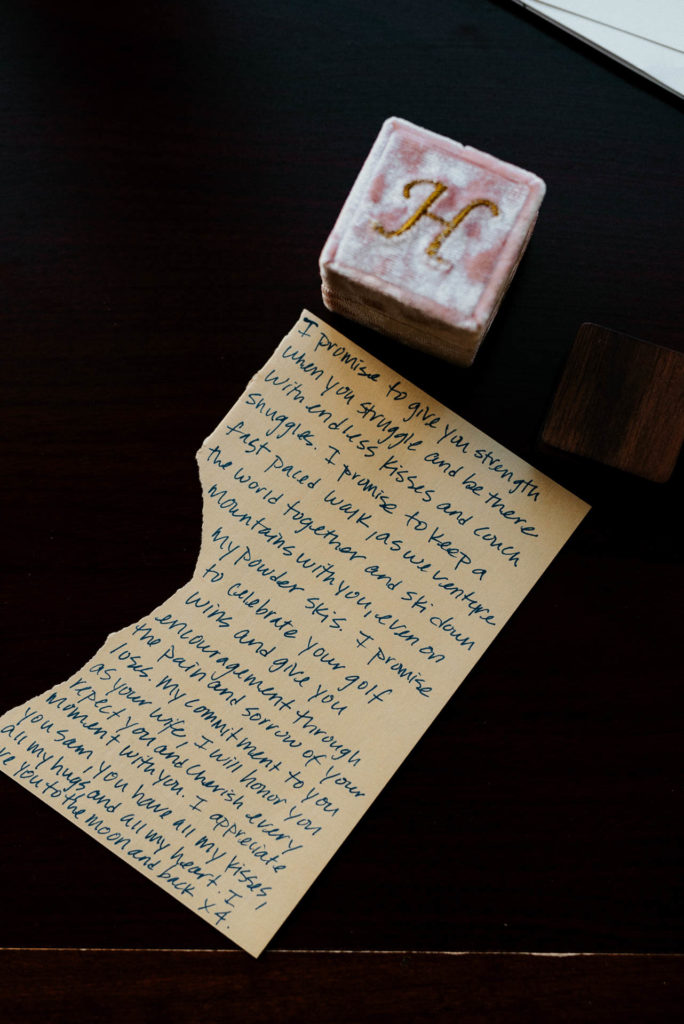 H
I promise to give you strength
when you struggle and be there
with endless kisses and couch
snuggles. I promise to keep a
fast paced walk, as we venture
the world together and ski down
mountains with you, even on
my powder skis. I promise
to celebrate your golf
wins and give you
encouragement through
the pain and sorrow of your
loses. My commitment to you
as your wife, I will honor you
repect you and cherish every
moment with you. I appreciate
you Sam, you have all my kisses,
all my hugs and all my heart. I
you to the moon and back x4.